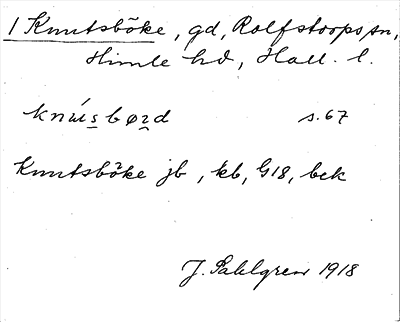 1 Knutsböke, gd, Rolfstorps sn,
Himle hd, Hall. l.
s. 67
Knutsböke jb, kb, G18, bek
J. Sahlgren 1918